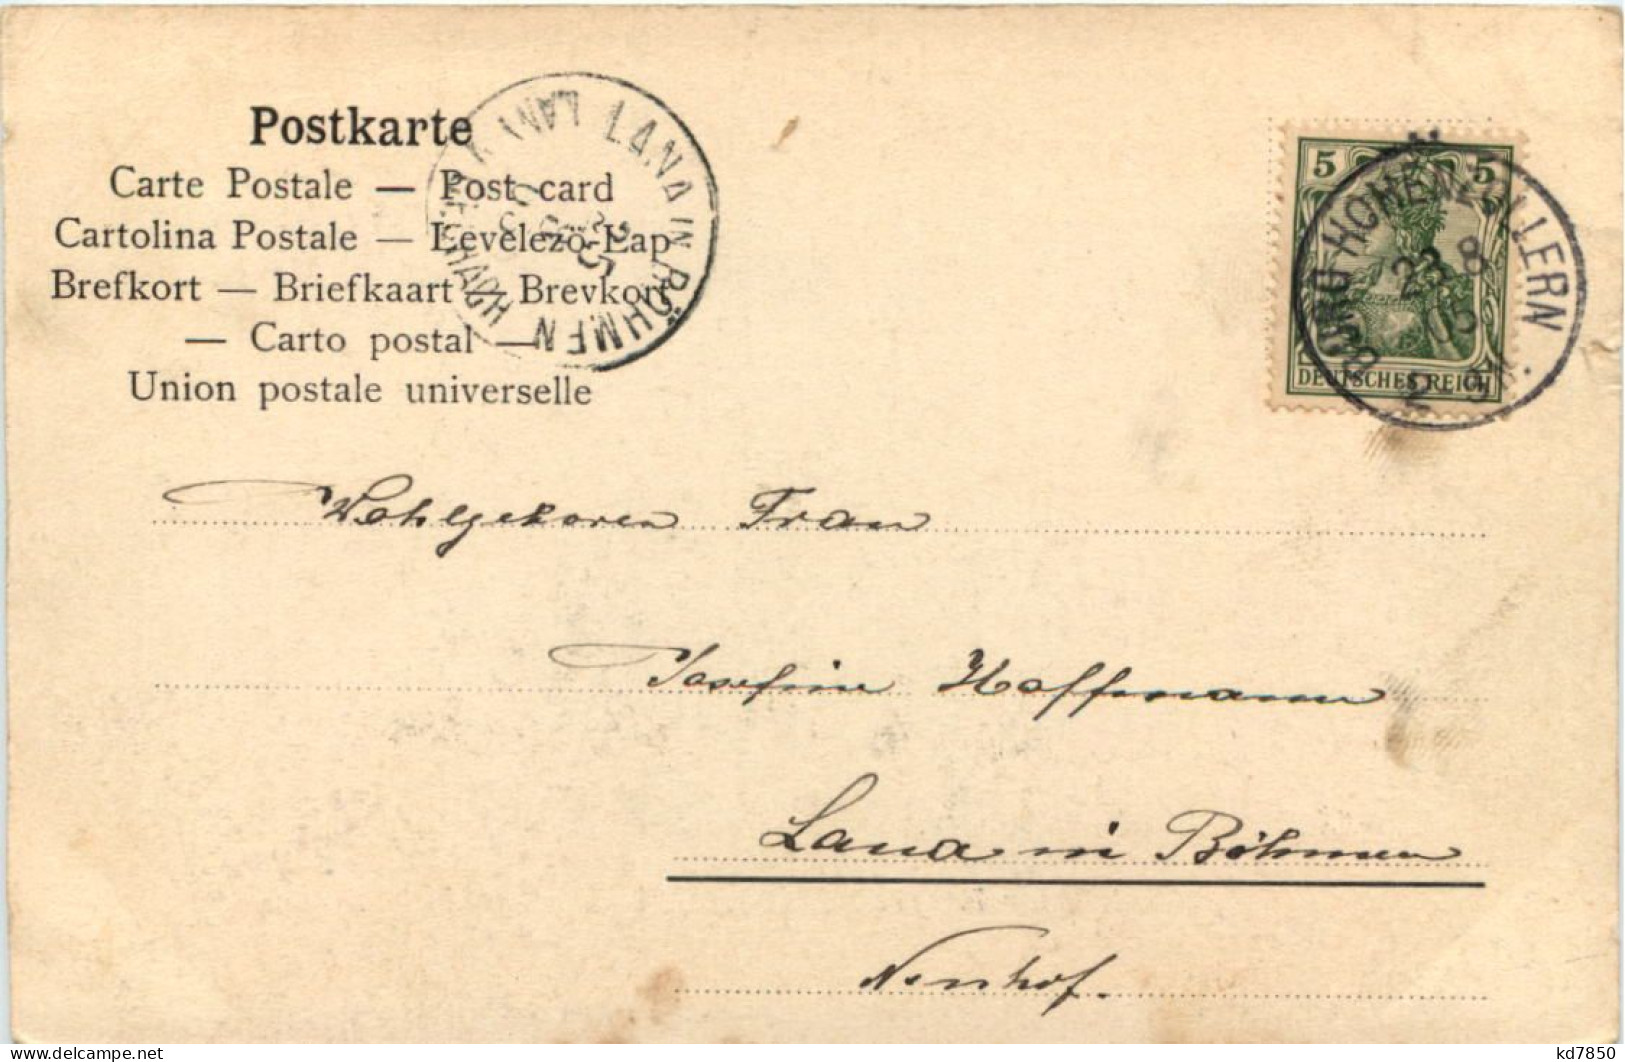 Postkarte
Carte Postale — Post card
Cartolina Postale — Levelező-Lap
Brefkort — Briefkaart — Brevkort
— Carto postal —
Union postale universelle
LANA IN BÖHMEN
5 5
DEUTSCHES REICH
BURG HOHENZOLLERN
23 8
05
2-3N.
Wohlgeboren Frau
Josefine Hoffmann
Lana in Böhmen
Neuhof.
kd7850